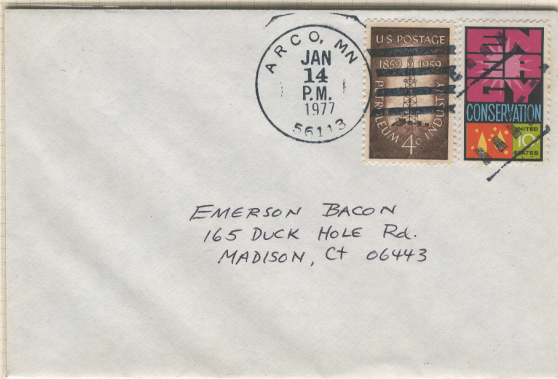 ARCO, MN
JAN
14
P.M.
1977
56113
U.S. POSTAGE
1859 1959
PETROLEUM INDUSTRY
4¢
ENERGY
CONSERVATION
UNITED
STATES
10
EMERSON BACON
165 DUCK HOLE Rd.
MADISON, Ct 06443